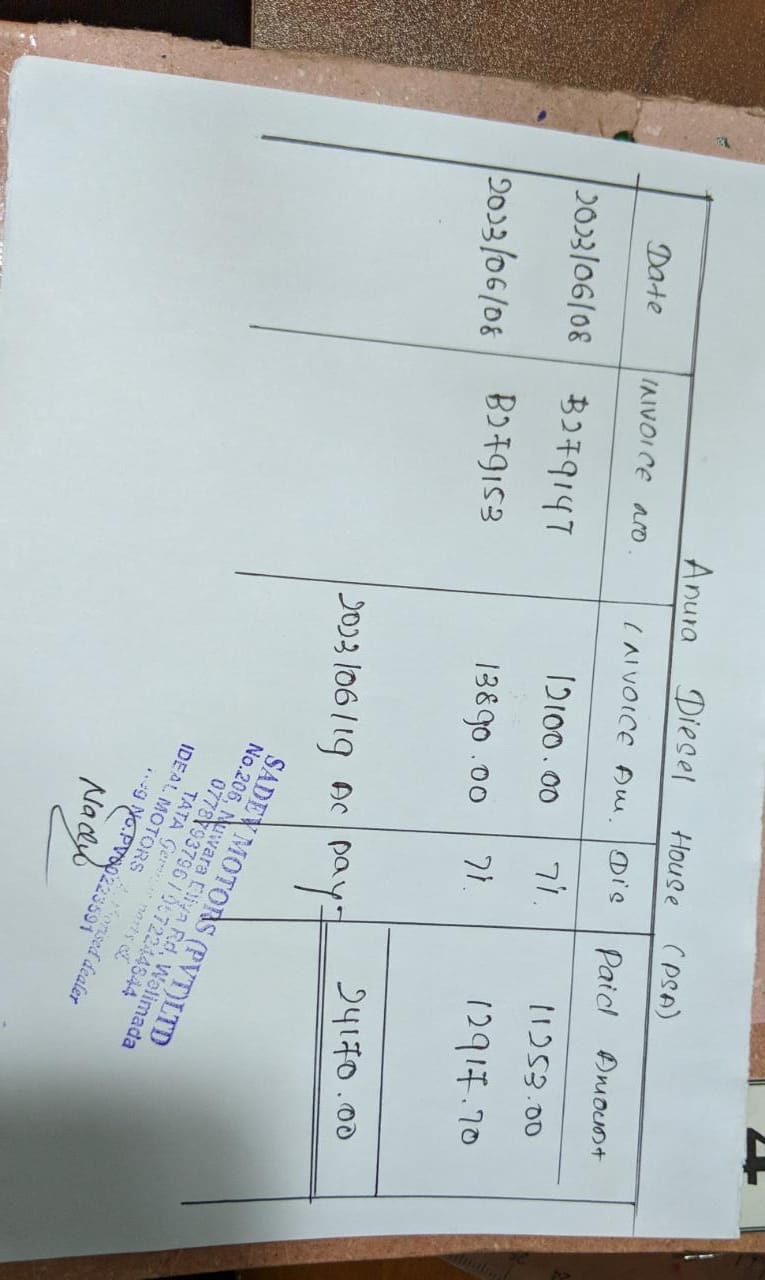 Anura Diesel House (DSA)
Date INVOICE no. INVOICE Am. Dis Paid Amount
2023/06/08 B279147 12100.00 7%. 11253.00
2023/06/08 B279153 13890.00 7%. 12917.70
2023/06/19 AC pay- 24170.00
SADEV MOTORS (PVT) LTD
No.206, Nuwara Eliya Rd, Welimada
TATA
IDEAL MOTORS
dealer
4